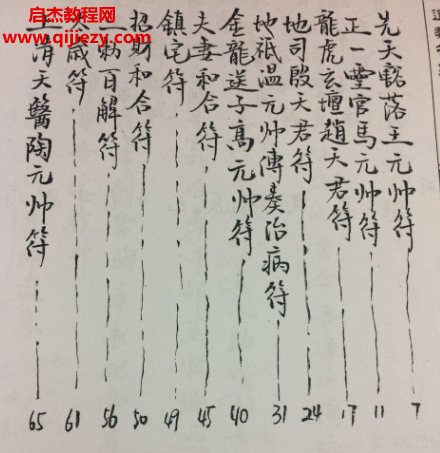 先天豁落王元帅符 7
正一靈官馬元帅符 11
龍虎玄壇趙天君符 17
地司殷天君符 24
地祇温元帅傳奏治病符 31
金龍送子高元帅符 40
夫妻和合符 45
鎮宅符 49
招財和合符 50
百解符 56
歲符 61
上清天醫陶元帅符 65
启杰教程网
www.qijiezy.com